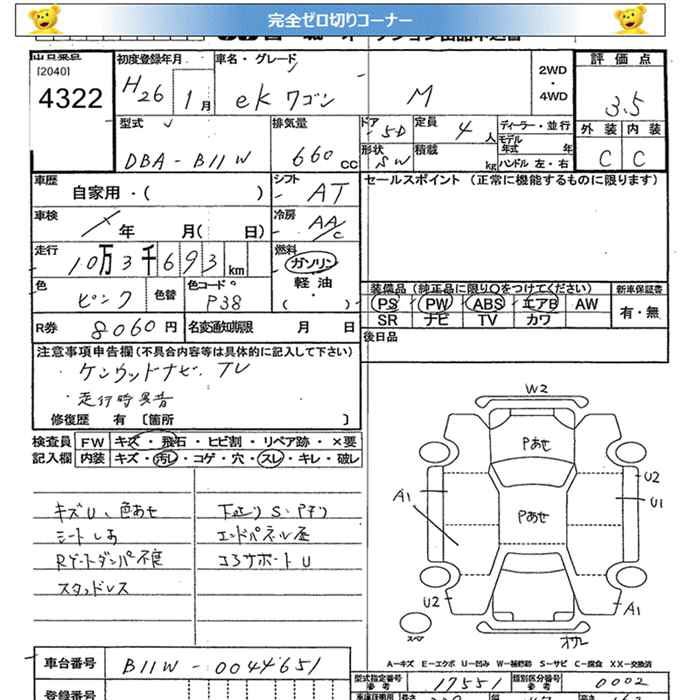 完全ゼロ切りコーナー
[2040]
4322
初度登録年月
H26 1月
車名・グレード
ekワゴン M
2WD
・
4WD
評価点
3.5
外装 内装
C C
型式
DBA-B11W
排気量
660 cc
ドア
5D
形状
SW
定員
4人
積載
kg
ディーラー・並行
モデル年式 年
ハンドル 左・右
車歴
自家用・( )
シフト
AT
セールスポイント (正常に機能するものに限ります)
車検
年 月( 日)
冷房
AA/C
走行
10万3千693km
燃料
ガソリン
軽油
・( )
色
ピンク
色替
色コードNo.
P38
装備品 (純正品に限り○をつけてください)
PS PW ABS エアB AW
SR ナビ TV カワ
新車保証書
有・無
R券
8060円
名変通知期限 月 日
後日品
注意事項申告欄(不具合内容等は具体的に記入して下さい)
ケンウッドナビ、TV
走行時異音
修復歴 有 〔箇所 〕
検査員
記入欄
FW キズ・飛石・ヒビ割・リペア跡・×要
内装 キズ・汚レ・コゲ・穴・スレ・キレ・破レ
キズU、色あせ
下廻りS・Pチリ
シートしあ
エンドパネル歪
Rゲートダンパ不良
コアサポートU
スタッドレス
W2
Pあせ
Pあせ
A1
U2
U1
U2
A1
スペア
オサレ
A-キズ E-エクボ U-凹み W-補修跡 S-サビ C-腐食 XX-交換済
車台番号
B11W-0044651
型式指定番号
参考
17551
類別区分番号
参考
0002
登録番号